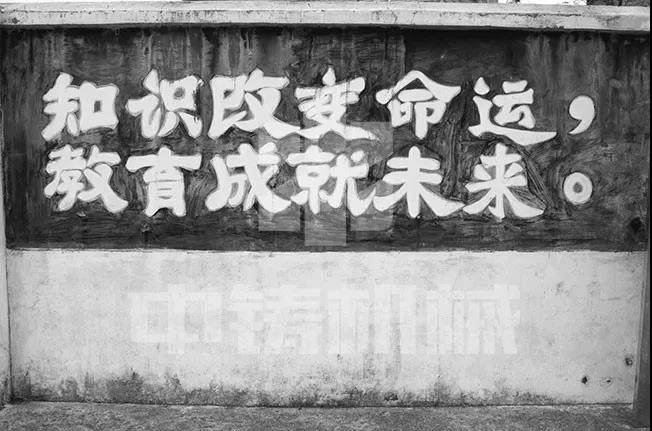 知识改变命运，
教育成就未来。
中铸机械